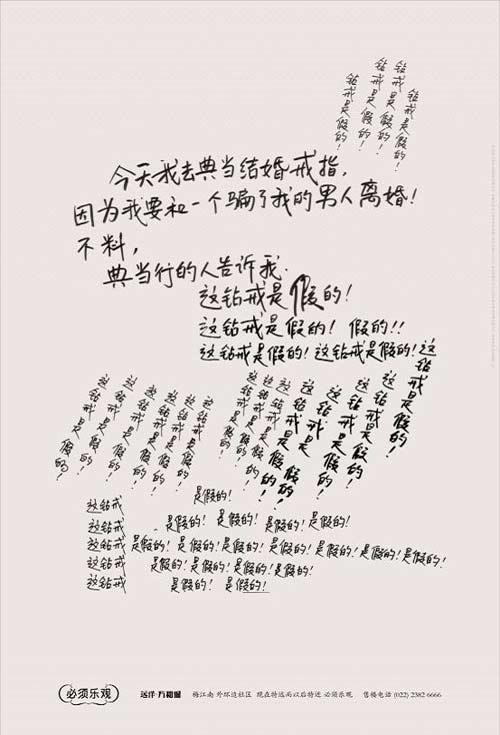 钻戒是假的！
钻戒是假的！
钻戒是假的！
钻戒是假的！
今天我去典当结婚戒指，
因为我要和一个骗了我的男人离婚！
不料，
典当行的人告诉我.
这钻戒是假的！
这钻戒是假的！假的！！
这钻戒是假的！这钻戒是假的！这
钻戒是假的！
这钻戒是假的！
这钻戒是假的！
这钻戒是假的！
这钻戒是假的！
这钻戒是假的！
这钻戒是假的！
这钻戒是假的！
这钻戒是假的！
这钻戒是假的！
这钻戒是假的！
这钻戒是假的！
这钻戒是假的！
这钻戒是假的！
这钻戒 是假的！
这钻戒 是假的！是假的！是假的！是假的！
这钻戒 是假的！是假的！是假的！是假的！是假的！是假的！是假的！
这钻戒 是假的！是假的！是假的！是假的！
这钻戒 是假的！是假的！
必须乐观 远洋·万和城 梅江南 外环边社区 现在特远而以后特近 必须乐观 售楼电话 (022) 2382 6666